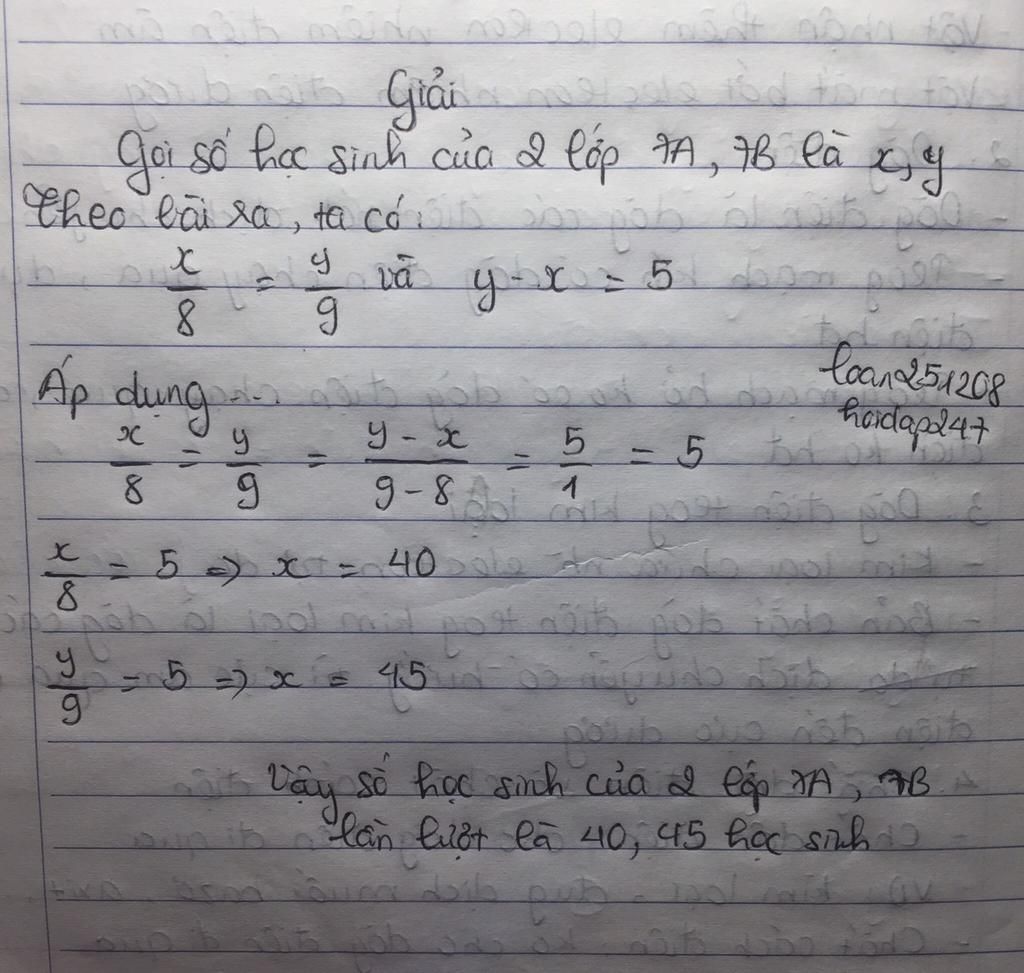 Giải
Gọi số học sinh của 2 lớp 7A, 7B là x, y
Theo bài ra, ta có:
x/8 = y/9 và y - x = 5
Áp dụng ...
loan251208
hoidap247
x/8 = y/9 = (y - x)/(9 - 8) = 5/1 = 5
x/8 = 5 => x = 40
y/9 = 5 => x = 45
Vậy số học sinh của 2 lớp 7A, 7B
lần lượt là 40, 45 học sinh